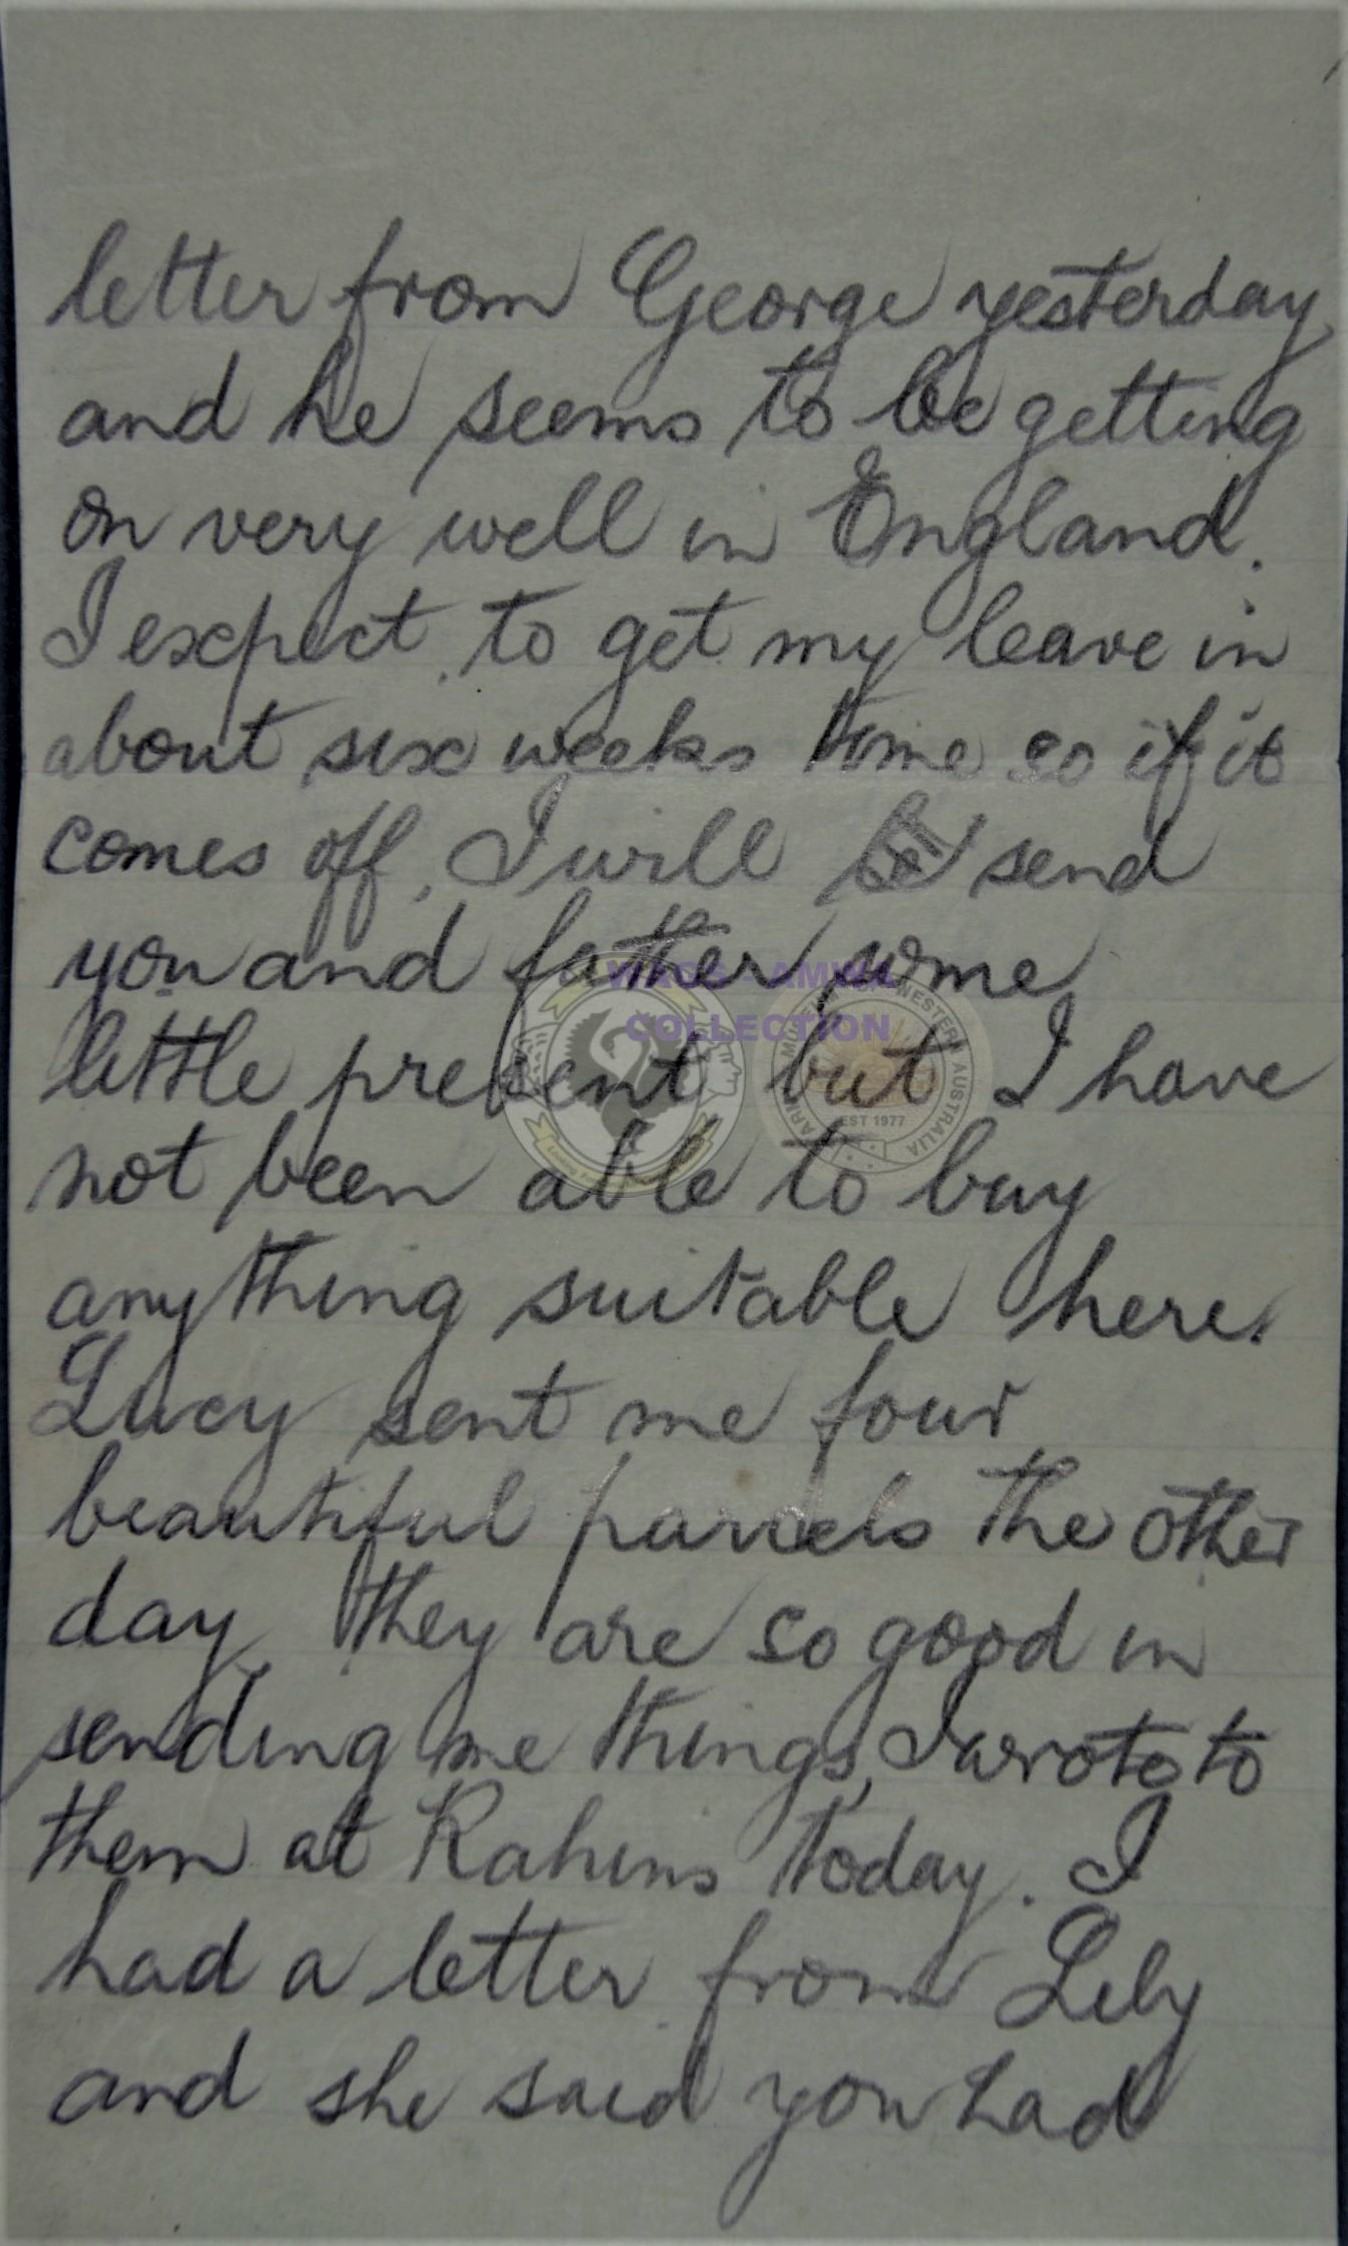 letter from George yesterday
and he seems to be getting
on very well in England.
I expect to get my leave in
about six weeks time so if it
comes off, I will be send
you and father some
WAGS - AMWA
COLLECTION
little present but I have
EST 1977
not been able to buy
anything suitable here.
Lucy sent me four
beautiful parcels the other
day they are so good in
sending me things, I wrote to
them at Rahins today. I
had a letter from Lily
and she said you had